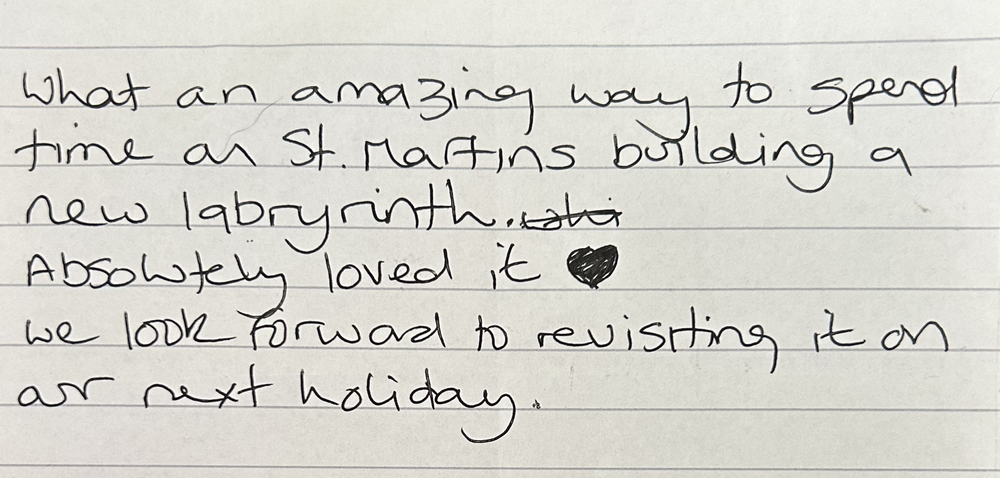 What an amazing way to spend
time on St. Martins building a
new labryrinth.
Absolutely loved it ♥
we look forward to revisiting it on
our next holiday.